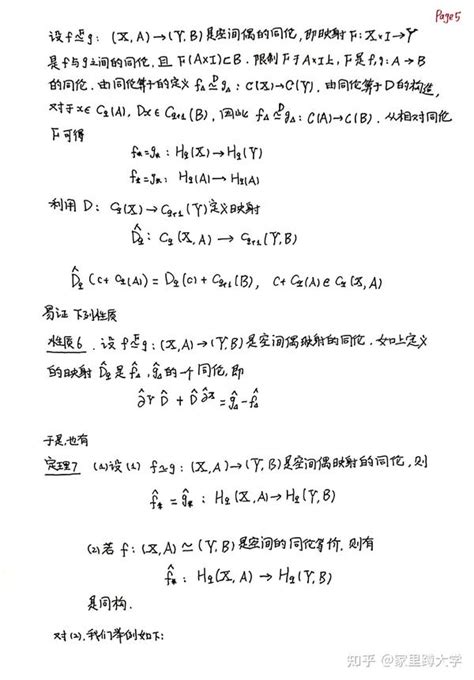 Page 5
设 f≃g: (X, A)→(Y, B) 是空间偶的同伦, 即映射 F: X×I→Y
是 f 与 g 之间的同伦, 且 F(A×I)⊂B. 限制 F 于 A×I 上, F 是 f, g: A→B
的同伦. 由同伦算子的定义 f_Δ ≃^D g_Δ: C(X)→C(Y). 由同伦算子 D 的构造,
对于 x∈C_q(A), Dx∈C_{q+1}(B), 因此 f_Δ ≃^D g_Δ: C(A)→C(B). 从相对同伦
F 可得
f_*=g_*: H_q(X)→H_q(Y)
f_*=g_*: H_q(A)→H_q(A)
利用 D: C_q(X)→C_{q+1}(Y) 定义映射
D̂_q: C_q(X, A) → C_{q+1}(Y, B)
D̂_q(c+C_q(A)) = D_q(c)+C_{q+1}(B), c+C_q(A)∈C_q(X, A)
易证下列性质
性质6. 设 f≃^F g: (X, A)→(Y, B) 是空间偶映射的同伦. 如上定义
的映射 D̂_q 是 f̂_Δ, ĝ_Δ 的一个同伦, 即
∂̂^Y D̂ + D̂ ∂̂^X = ĝ_Δ - f̂_Δ
于是, 也有
定理7 (1) 设 (1) f≃g: (X, A)→(Y, B) 是空间偶映射的同伦, 则
f̂_* = ĝ_*: H_q(X, A)→H_q(Y, B)
(2) 若 f: (X, A)≃(Y, B) 是空间的同伦等价, 则有
f̂_*: H_q(X, A) → H_q(Y, B)
是同构.
对(2), 我们举例如下:
知乎 @家里蹲大学